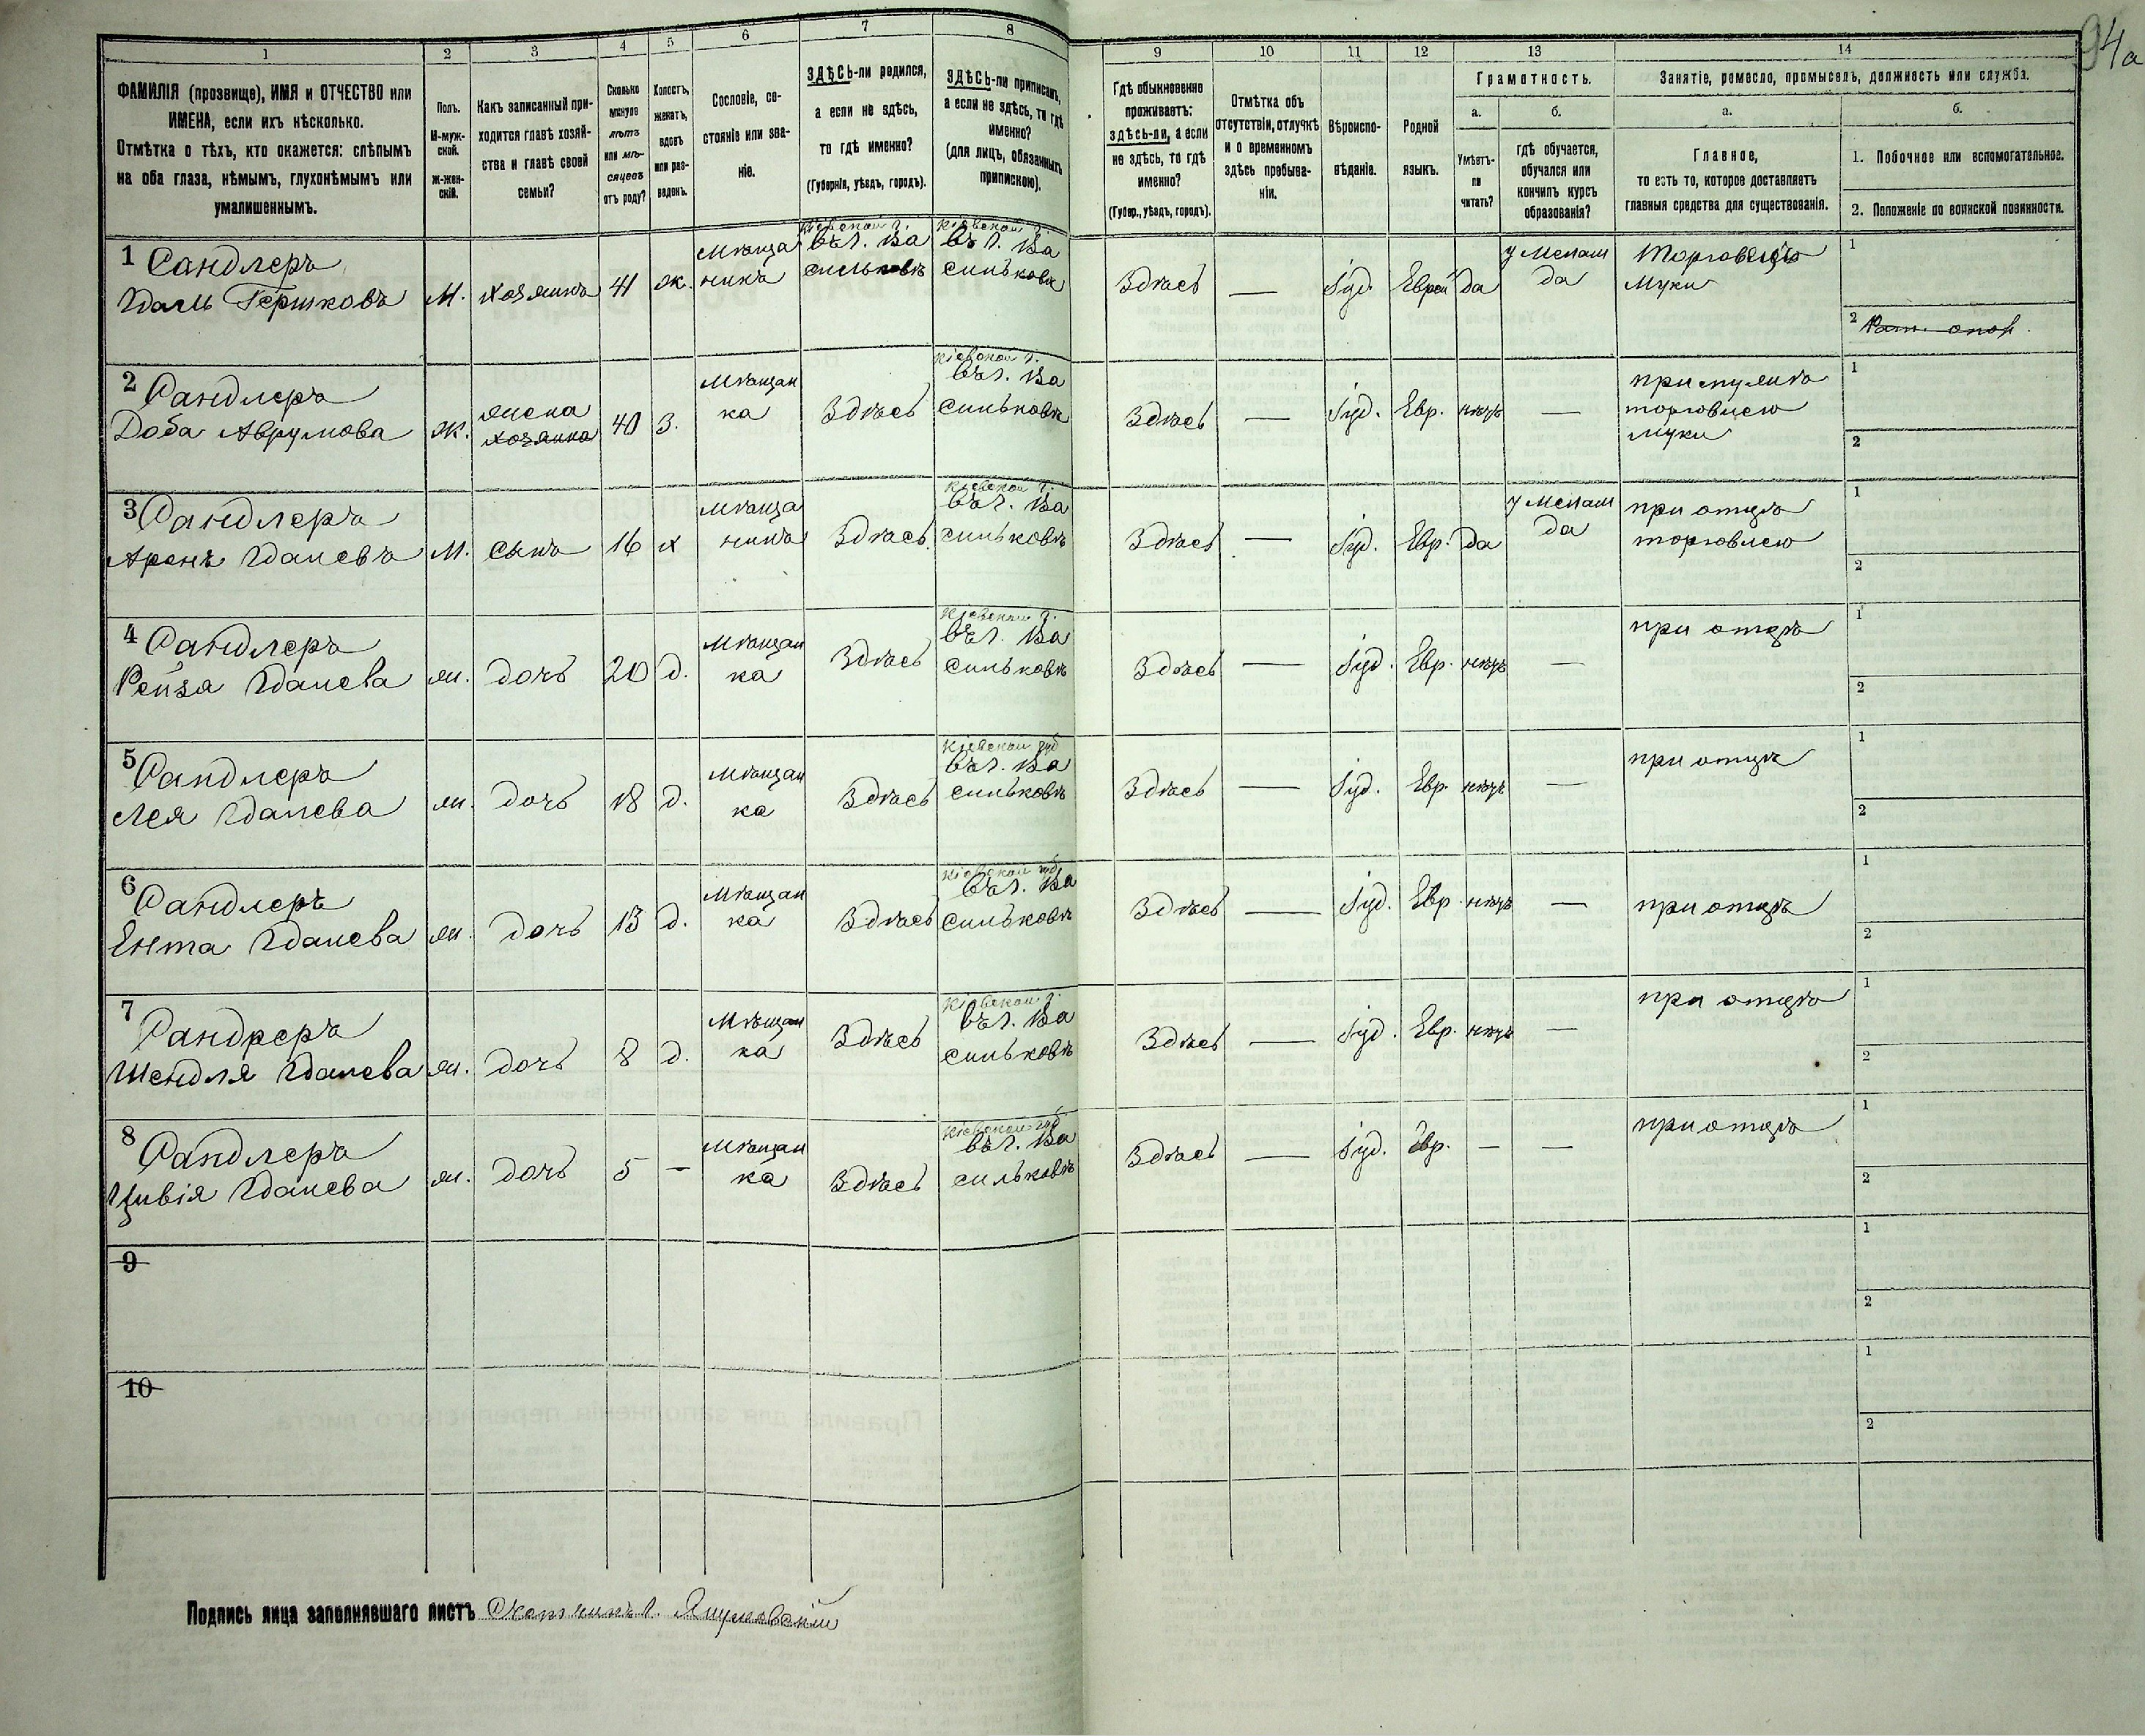 94а
1
2
3
4
5
6
7
8
9
10
11
12
13
14
ФАМИЛІЯ (прозвище), ИМЯ и ОТЧЕСТВО или
ИМЕНА, если ихъ нѣсколько.
Отмѣтка о тѣхъ, кто окажется: слѣпымъ
на оба глаза, нѣмымъ, глухонѣмымъ или
умалишеннымъ.
Полъ.
М-муж-
ской.
Ж-жен-
скій.
Какъ записанный при-
ходится главѣ хозяй-
ства и главѣ своей
семьи?
Сколько
минуло
лѣтъ
или мѣ-
сяцевъ
отъ роду?
Холостъ,
женатъ,
вдовъ
или раз-
веденъ.
Сословіе, со-
стояніе или зва-
ніе.
ЗДѢСЬ-ли родился,
а если не здѣсь,
то гдѣ именно?
(Губернія, уѣздъ, городъ).
ЗДѢСЬ-ли приписанъ,
а если не здѣсь, то гдѣ
именно?
(для лицъ, обязанныхъ
припискою).
Гдѣ обыкновенно
проживаетъ:
здѣсь-ли, а если
не здѣсь, то гдѣ
именно?
(Губер., уѣздъ, городъ).
Отмѣтка объ
отсутствіи, отлучкѣ
и о временномъ
здѣсь пребыва-
ніи.
Вѣроиспо-
вѣданіе.
Родной
языкъ.
Грамотность.
а.
Умѣетъ-
ли
читать?
б.
гдѣ обучается,
обучался или
кончилъ курсъ
образованія?
Занятіе, ремесло, промыселъ, должность или служба.
а.
Главное,
то есть то, которое доставляетъ
главныя средства для существованія.
б.
1. Побочное или вспомогательное.
2. Положеніе по воинской повинности.
1 Сандлеръ
Гдаль Гершковъ
М.
хозяинъ
41
ж.
мѣща
нинъ
Кіевской г.
въ г. Ва
сильковѣ
Кіевской г.
въ г. Ва
сильковѣ
Здѣсь
—
Іуд.
Еврей
да
у мелам
да
Торговецъ
муки
1
2
2 Сандлеръ
Доба Аврумова
ж.
жена
хозяина
40
З.
мѣщан
ка
Здѣсь
Кіевской г.
въ г. Ва
сильковѣ
Здѣсь
—
Іуд.
Евр.
нѣтъ
—
при мужѣ
торговлею
муки
1
2
3 Сандлеръ
Аронъ Гдалевъ
М.
сынъ
16
х
мѣща
нинъ
Здѣсь
Кіевской г.
въ г. Ва
сильковѣ
Здѣсь
—
Іуд.
Евр.
да
у мелам
да
при отцѣ
торговлею
1
2
4 Сандлеръ
Рейзя Гдалева
ж.
дочь
20
д.
мѣщан
ка
Здѣсь
Кіевской г.
въ г. Ва
сильковѣ
Здѣсь
—
Іуд.
Евр.
нѣтъ
—
при отцѣ
1
2
5 Сандлеръ
Лея Гдалева
ж.
дочь
18
д.
мѣщан
ка
Здѣсь
Кіевской губ
въ г. Ва
сильковѣ
Здѣсь
—
Іуд.
Евр.
нѣтъ
—
при отцѣ
1
2
6 Сандлеръ
Ента Гдалева
ж.
дочь
13
д.
мѣщан
ка
Здѣсь
Кіевской губ
въ г. Ва
сильковѣ
Здѣсь
—
Іуд.
Евр.
нѣтъ
—
при отцѣ
1
2
7 Сандлеръ
Шендля Гдалева
ж.
дочь
8
д.
мѣщан
ка
Здѣсь
Кіевской г.
въ г. Ва
сильковѣ
Здѣсь
—
Іуд.
Евр.
нѣтъ
—
при отцѣ
1
2
8 Сандлеръ
Цивія Гдалева
ж.
дочь
5
—
мѣщан
ка
Здѣсь
Кіевской губ
въ г. Ва
сильковѣ
Здѣсь
—
Іуд.
Евр.
—
—
при отцѣ
1
2
9
1
2
10
1
2
Подпись лица заполнявшаго листъ